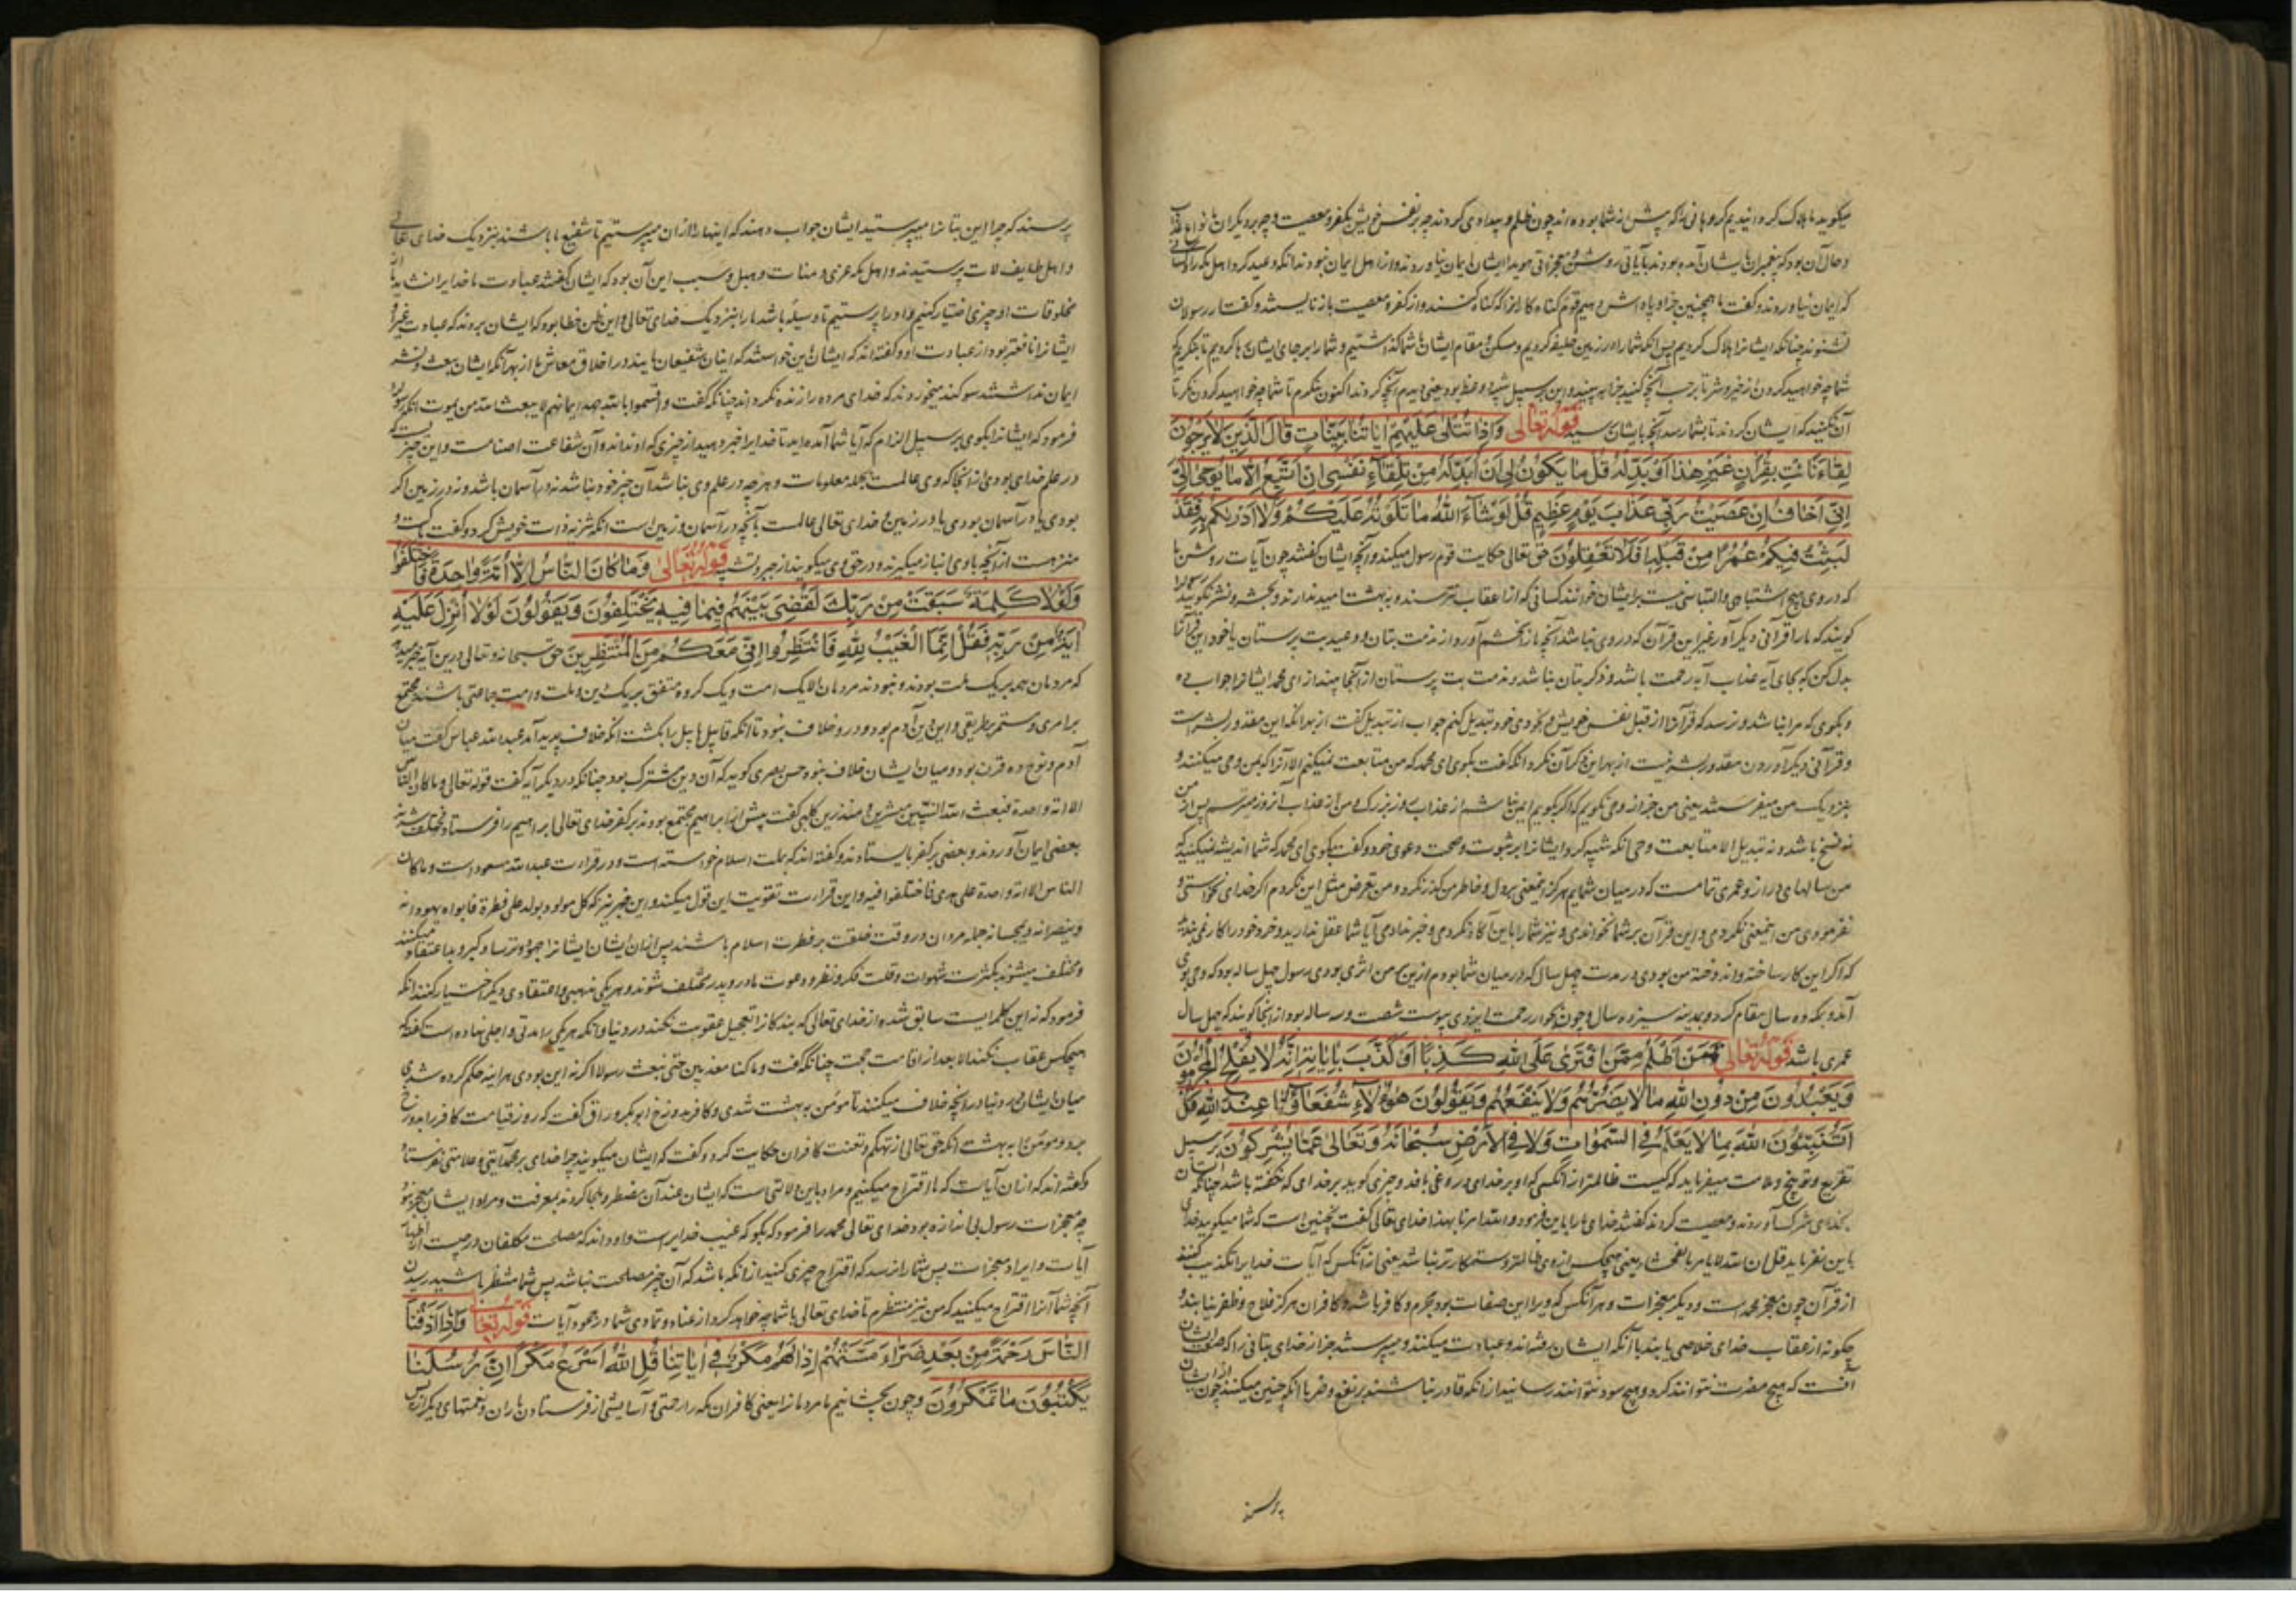 میگوید ما هلاک کردانیدیم کروهانی را که پیش از شما بوده اند چون ظلم و بیدادی کردند چه بر نفس خویش بکفر و معصیت و چه بر دیگران بانواع
و حال آن بود که پیغمبران بایشان آمده بودند بآیاتی روشن و معجزاتی هویدا ایشان ایمان نیاوردند و از اهل ایمان نبودند انکه وعید کرد اهل مکه را
که ایمان نیاوردند و گفت ما همچنین جزا و پاداش دهیم قوم کناه کار را اکر کناه کنند و از کفر و معصیت باز نایستند و گفتار رسولان
نشنوند چنانکه ایشانرا هلاک کردیم پس انکه شما را در زمین خلیفه کردیم و مسکن و مقام ایشان بشما کذاشتیم و شما را بر جای ایشان بکردیم تا بنکریم که
شما چه خواهید کردن از خیر و شر تا بر حسب آنچه کنید جزا بدهیم
آن نکنید که ایشان کردند تا بشما رسد آنچه بایشان رسید قوله تعالی وَاِذَا تُتْلٰى عَلَيْهِمْ اٰيَاتُنَا بَيِّنَاتٍ قَالَ الَّذِينَ لَا يَرْجُونَ
لِقَاءَنَا ائْتِ بِقُرْاٰنٍ غَيْرِ هٰذَا اَوْ بَدِّلْهُ قُلْ مَا يَكُونُ لِى اَنْ اُبَدِّلَهُ مِنْ تِلْقَاءِ نَفْسِى اِنْ اَتَّبِعُ اِلَّا مَا يُوحٰى اِلَيَّ
اِنِّى اَخَافُ اِنْ عَصَيْتُ رَبِّى عَذَابَ يَوْمٍ عَظِيمٍ قُلْ لَوْ شَاءَ اللهُ مَا تَلَوْتُهُ عَلَيْكُمْ وَلَا اَدْرٰيكُمْ بِهِ فَقَدْ
لَبِثْتُ فِيكُمْ عُمُرًا مِنْ قَبْلِهِ اَفَلَا تَعْقِلُونَ حق تعالی حکایت قوم رسول میکند و آنچه ایشان گفتند چون آیات روشن ما
که در وی هیچ اشتباهی و التباسی نیست بر ایشان خوانند کسانی که از عقاب نترسند و به بهشت امید ندارند و بحشر و نشر نکویند
کویند که ما را قرآنی دیکر آور غیر این قرآن که در وی نباشد آنچه ما را بخشم آورد از مذمت بتان و وعید بت پرستان یا خود این قرآن را
بدل کن که بجای آیه عذاب آیه رحمت باشد و ذکر بتان نباشد و مذمت بت پرستان از آنجا بیندازی ای محمد ایشانرا جواب ده
و بکوی که مرا نباشد و نرسد که قرآن را از قبل نفس خویش و بخودی خود تبدیل کنم جواب از تبدیل گفت از بهر انکه این مقدور بشر است
و قرآنی دیکر آوردن مقدور بشر نیست از بهر این ذکر آن نکرد انکه گفت بکوی ای محمد که من متابعت نمیکنم الا آنرا که بمن وحی میکنند و
نه نسخ باشد و نه تبدیل الا متابعت وحی انکه تنبیه کرد ایشانرا بر ثبوت و صحت دعوی خود و گفت بکوی ای محمد که شما اندیشه نمیکنید که
من سالهای دراز و عمری تمامست که در میان شمایم هرکز این معنی بر دل و خاطر من کذر نکرد و من تعرض مثل این نکردم اکر خدای نخواستی و
نفرمودی من این معنی نکردمی و این قرآن بر شما نخواندمی و نیز شما را باین آکاه نکردمی و خبر ندادمی آیا شما عقل ندارید و خرد خود را کار نمی بندید
که اکر این کار ساخته و اندوخته من بودی در مدت چهل سال که در میان شما بودم ازین من اثری بودی رسول چهل ساله بود که وحی بوی
آمد و بمکه ده سال مقام کرد و بمدینه سیزده سال و چون بجوار رحمت ایزدی پیوست شصت و سه ساله بود از اینجا کویند که چهل سال
عمری باشد قوله تعالی فَمَنْ اَظْلَمُ مِمَّنِ افْتَرٰى عَلَى اللهِ كَذِبًا اَوْ كَذَّبَ بِاٰيَاتِهِ اِنَّهُ لَا يُفْلِحُ الْمُجْرِمُونَ
وَيَعْبُدُونَ مِنْ دُونِ اللهِ مَا لَا يَضُرُّهُمْ وَلَا يَنْفَعُهُمْ وَيَقُولُونَ هٰؤُلَاءِ شُفَعَاؤُنَا عِنْدَ اللهِ قُلْ
اَتُنَبِّئُونَ اللهَ بِمَا لَا يَعْلَمُ فِى السَّمٰوَاتِ وَلَا فِى الْاَرْضِ سُبْحَانَهُ وَتَعَالٰى عَمَّا يُشْرِكُونَ بر سبیل
تقریع و توبیخ و ملامت میفرماید که کیست ظالمتر از آنکسی که او بر خدای دروغی بافد و چیزی کوید بر خدای که نگفته باشد چنانکه
بخدای شرک آوردند و معصیت کردند گفتند خدای ما را باین فرمود والله امرنا بهذا خدای تعالی گفت نه چنین است که شما میکویید خدای
باین نفرماید قل ان الله لا یامر بالفحشاء یعنی هیچکس از وی ظالمتر و ستمکارتر نباشد یعنی از آنکس که آیات خدایرا تکذیب کنند
از قرآن چون معجز محمد است و دیکر معجزات و هر آنکس که ویرا این صفات بود مجرم و کافر باشد و کافران هرکز فلاح و ظفر نیابند و
چکونه از عقاب خدای خلاصی یابند با آنکه ایشان
آنست که هیچ مضرت نتوانند کرد و هیچ سود نتوانند رسانید از انکه قادر نباشند بر نفع و ضر با انکه چنین میکنند چون ایشان
پرسند
پرسند که چرا این بتانرا میپرستید ایشان جواب دهند که اینها را از آن میپرستیم تا شفیع ما باشند بنزدیک خدای تعالی
و اهل طایف لات پرستیدند و اهل مکه عزی و منات و هبل و سبب این آن بود که ایشان گفتند عبادت ما خدایرا نشاید
مخلوقات او چیزی اختیار کنیم و او را پرستیم تا وسیله باشد ما را بنزدیک خدای تعالی و این ظن خطا بود که ایشان بردند که عبادت غیر
ایشانرا نافعتر بود از عبادت او و گفته اند که ایشان باین خواستند که اینان شفیعان مایند در اخلاق معاش ما از بهر آنکه ایشان ببعث و نشر
ایمان نداشتند سوکند میخوردند که خدای مرده را زنده نکرداند چنانکه گفت و اقسموا بالله جهد ایمانهم لا یبعث الله من یموت انکه رسول را
فرمود که ایشانرا بکوی بر سبیل الزام که آیا شما آمده اید تا خدایرا خبر دهید از چیزی که او نداند و آن شفاعت اصنامست و این چیز
در علم خدای بودی از آنجا که وی عالمست بجمله معلومات و هرچه در علم وی نباشد آن چیز خود نباشد نه در آسمان باشد و نه در زمین اکر
بودی یا در آسمان بودی یا در زمین و خدای تعالی عالمست بآنچه در آسمان و زمین است انکه تنزیه ذات خویش کرد و گفت پاکست و
منزهست از آنچه باوی انباز میکیرند و در حق وی میکویند از جبر و تشبیه قوله تعالی وَمَا كَانَ النَّاسُ اِلَّا اُمَّةً وَاحِدَةً فَاخْتَلَفُوا
وَلَوْلَا كَلِمَةٌ سَبَقَتْ مِنْ رَبِّكَ لَقُضِىَ بَيْنَهُمْ فِيمَا فِيهِ يَخْتَلِفُونَ وَيَقُولُونَ لَوْلَا اُنْزِلَ عَلَيْهِ
اٰيَةٌ مِنْ رَبِّهِ فَقُلْ اِنَّمَا الْغَيْبُ لِلّٰهِ فَانْتَظِرُوا اِنِّى مَعَكُمْ مِنَ الْمُنْتَظِرِينَ حق سبحانه و تعالی درین آیه خبر میدهد
که مردمان همه بر یک ملت بودند و نبودند مردمان الا یک امت و یک کروه متفق بر یک دین و ملت و امت جماعتی باشند مجتمع
بر امری و مستمر بر طریقی و این دین آدم بود و در و خلاف نبود تا انکه قابیل هابیل را بکشت انکه خلاف پدید آمد عبدالله عباس گفت میان
آدم و نوح ده قرن بود و میان ایشان خلاف نبود و حسن بصری کوید که آن دین شرک بود چنانکه در دیکر آیه گفت قوله تعالی و ما کان الناس
الا امة واحدة فبعث الله النبیین مبشرین و منذرین کلبی گفت پیش از ابراهیم مجتمع بودند بر کفر خدای تعالی ابراهیم را فرستاد و مختلف شدند
بعضی ایمان آوردند و بعضی بر کفر بایستادند و گفته اند که بملت اسلام خواسته است و در قرائت عبدالله مسعود است و ما کان
الناس الا امة واحدة علی هدی فاختلفوا فیه و این قرائت تقویت این قول میکند و این خبر نیز که کل مولود یولد علی فطرة فابواه یهودانه
و ینصرانه و یمجسانه جمله مردان در وقت خلقت بر فطرت اسلام باشند پس از آن ایشان ایشانرا جهود و ترسا و کبر و بداعتقاد میکنند
و مختلف میشوند بکثرت شهوات و قلت فکر و نظر و دعوت مادر و پدر مختلف شوند و هریکی مذهبی و اعتقادی دیکر اختیار کنند انکه
فرمود که نه این کلمه ایست سابق شده از خدای تعالی که بندکانرا تعجیل عقوبت نکند در دنیا و انکه هر یکی را مدتی و اجلی نهاده است
هیچکس عقاب نکند الا بعد از اقامت حجت چنانکه گفت و ما کنا معذبین حتی نبعث رسولا اکر نه این بودی هراینه حکم کرده شدی
میان ایشان هم در دنیا در آنچه خلاف میکنند تا مؤمن به بهشت شدی و کافر بدوزخ ابوبکر وراق گفت که روز قیامت کافر را بدوزخ
برد و مؤمن را به بهشت انکه حق تعالی از تهکم و تعنت کافران حکایت کرد و گفت که ایشان میکویند چرا خدای بر محمد آیتی و علامتی نفرستاد
و گفته اند که از آن آیات که ما اقتراح میکنیم و مراد باین دلالتی است که ایشان عند آن مضطر و ملجا کردند بمعرفت و مراد ایشان معجز نبود
چه معجزات رسول بی اندازه بود خدای تعالی محمد را فرمود که بکو که غیب خدایراست و او داند که مصلحت مکلفان در چیست از اظهار
آیات و ایراد معجزات پس شما را نرسد که اقتراح چیزی کنید از انکه باشد که آن چیز مصلحت نباشد پس شما منتظر باشید رسیدن
آنچه شما آنرا اقتراح میکنید که من نیز منتظرم تا خدای تعالی با شما چه خواهد کرد از عناد و تمادی شما در جحود آیات قوله تعالی وَاِذَا اَذَقْنَا
النَّاسَ رَحْمَةً مِنْ بَعْدِ ضَرَّاءَ مَسَّتْهُمْ اِذَا لَهُمْ مَكْرٌ فِى اٰيَاتِنَا قُلِ اللهُ اَسْرَعُ مَكْرًا اِنَّ رُسُلَنَا
يَكْتُبُونَ مَا تَمْكُرُونَ و چون بچشانیم ما مردمانرا یعنی کافران مکه را رحمتی و آسایشی از فرستادن باران و نعمتهای دیکر از پس